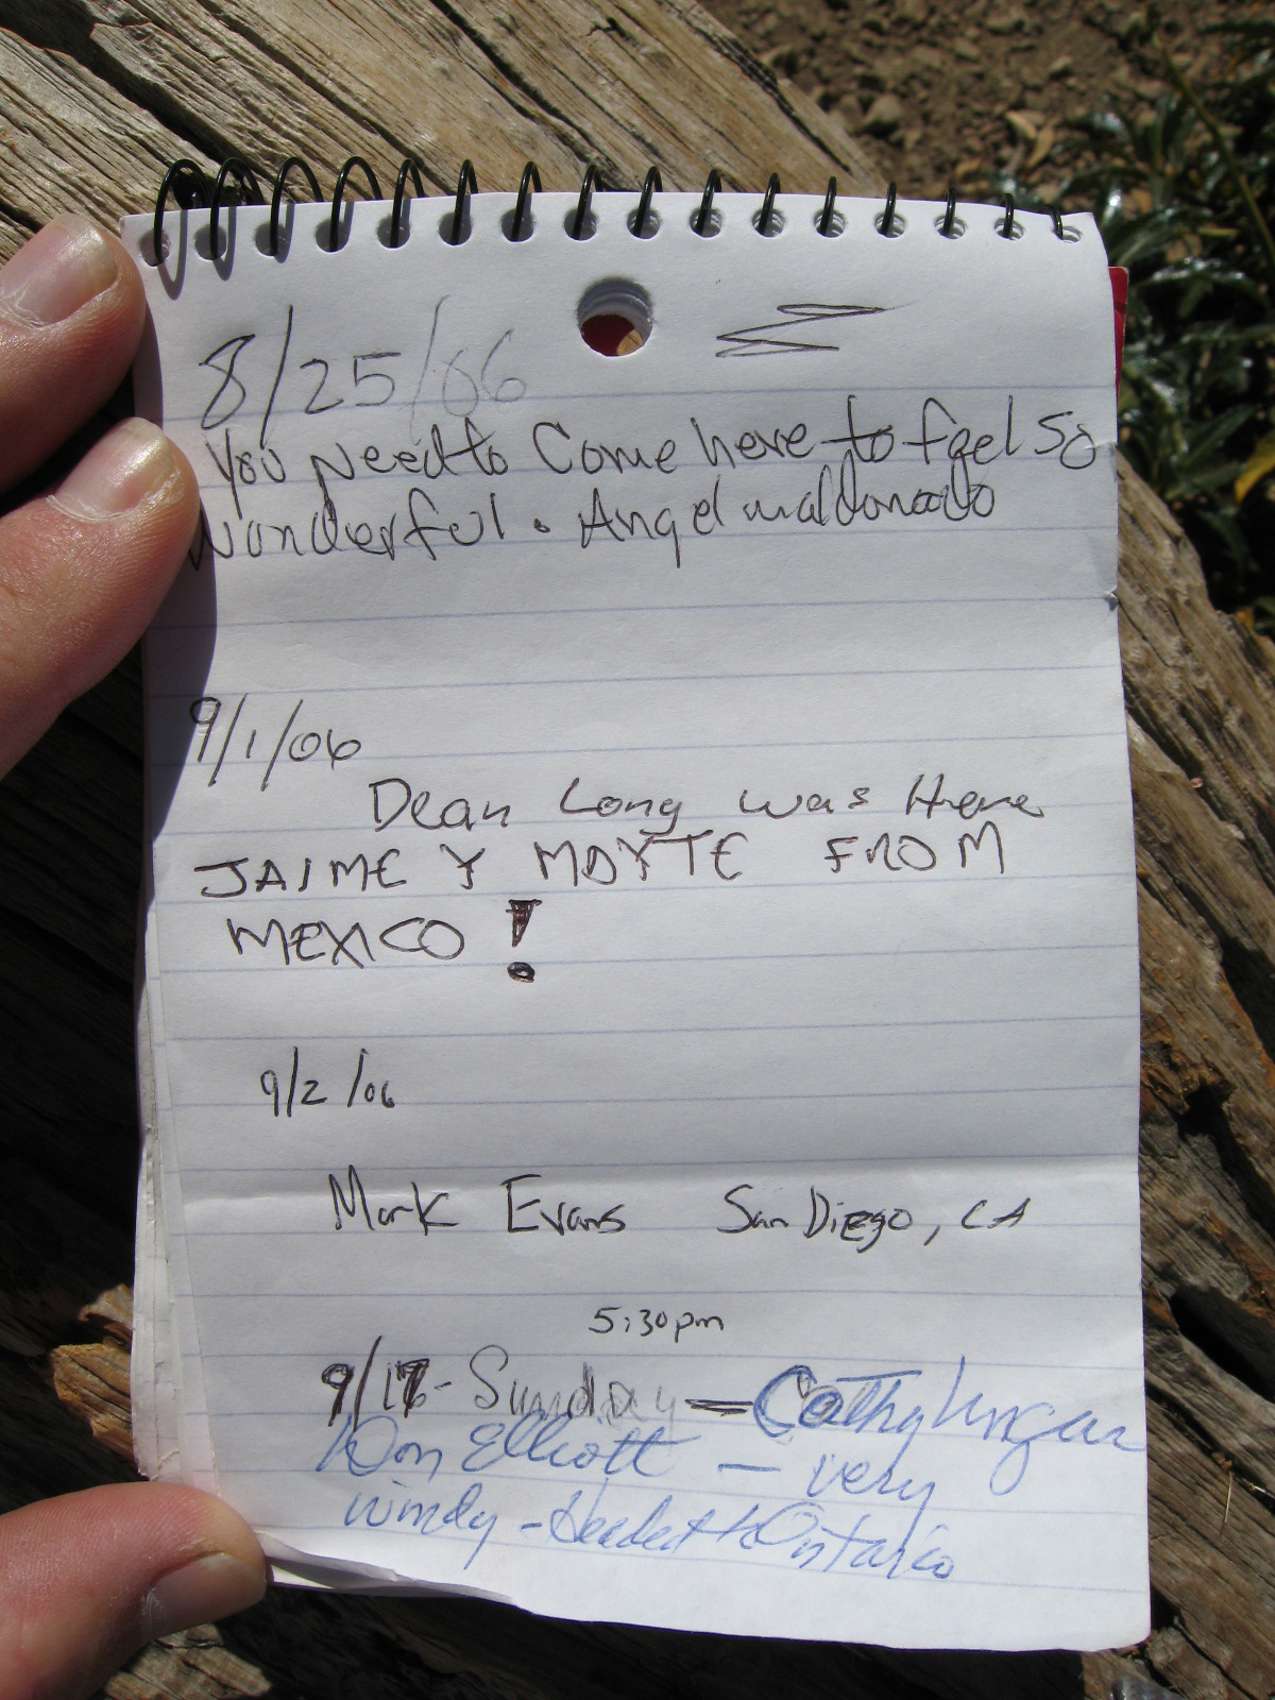 8/25/06
You Need to Come here to feel so
Wonderful. Angel maldonado
9/1/06
Dean Long was Here
JAIME Y MAYTE FROM
MEXICO!
9/2/06
Mark Evans San Diego, CA
5:30pm
9/17 - Sunday — Cathy Ungar
Don Elliott — very
windy - Headed to Ontario